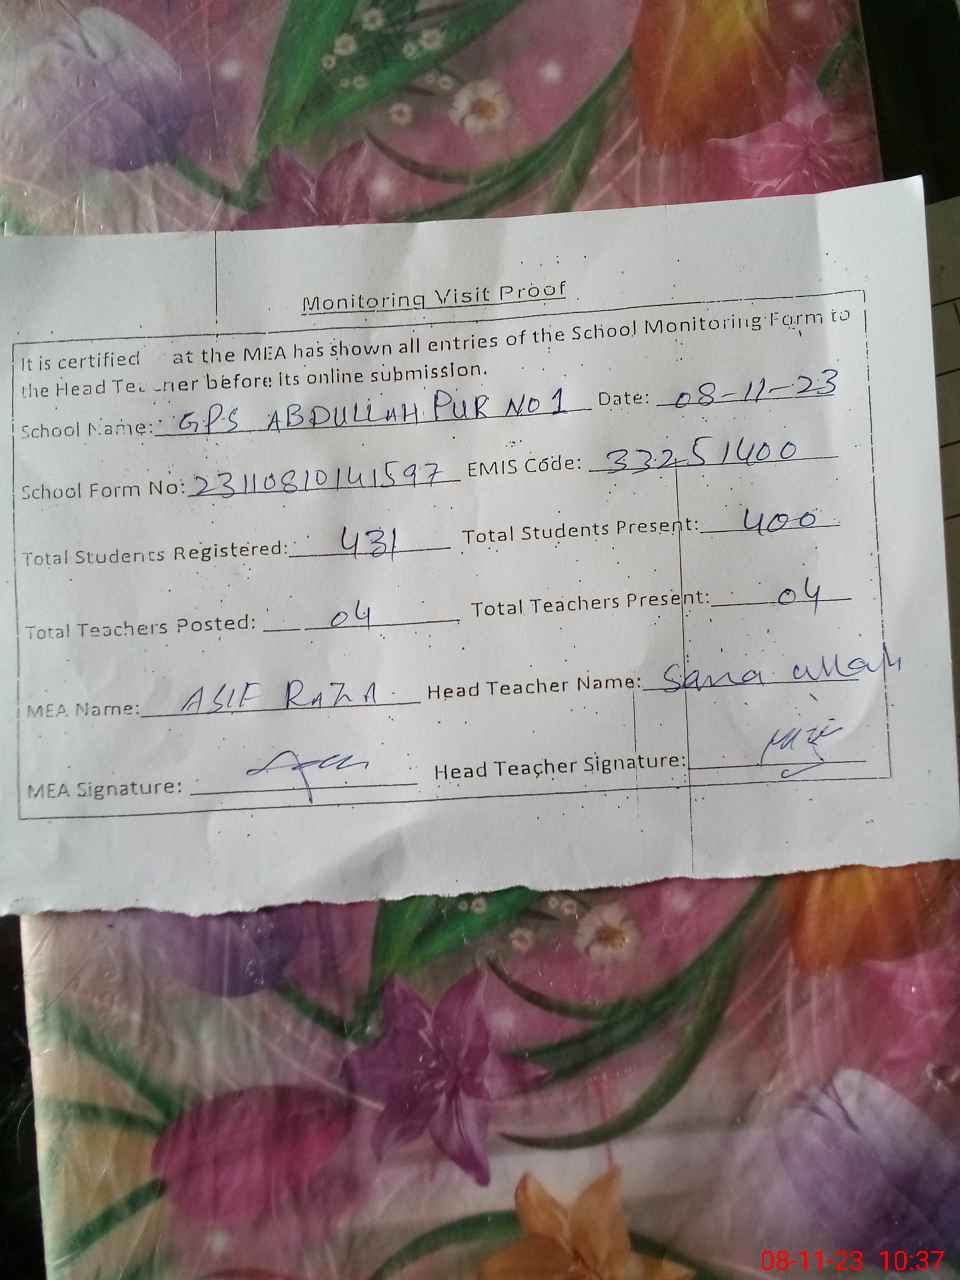 Monitoring Visit Proof
It is certified at the MEA has shown all entries of the School Monitoring Form to
the Head Teacher before its online submission.
School Name: GPS ABDULLAH PUR NO 1 Date: 08-11-23
School Form No: 2311081014 1597 EMIS Code: 33251400
Total Students Registered: 431 Total Students Present: 400
Total Teachers Posted: 04 Total Teachers Present: 04
MEA Name: ASIF RAZA Head Teacher Name: Sana ullah
MEA Signature: Head Teacher Signature:
08-11-23 10:37